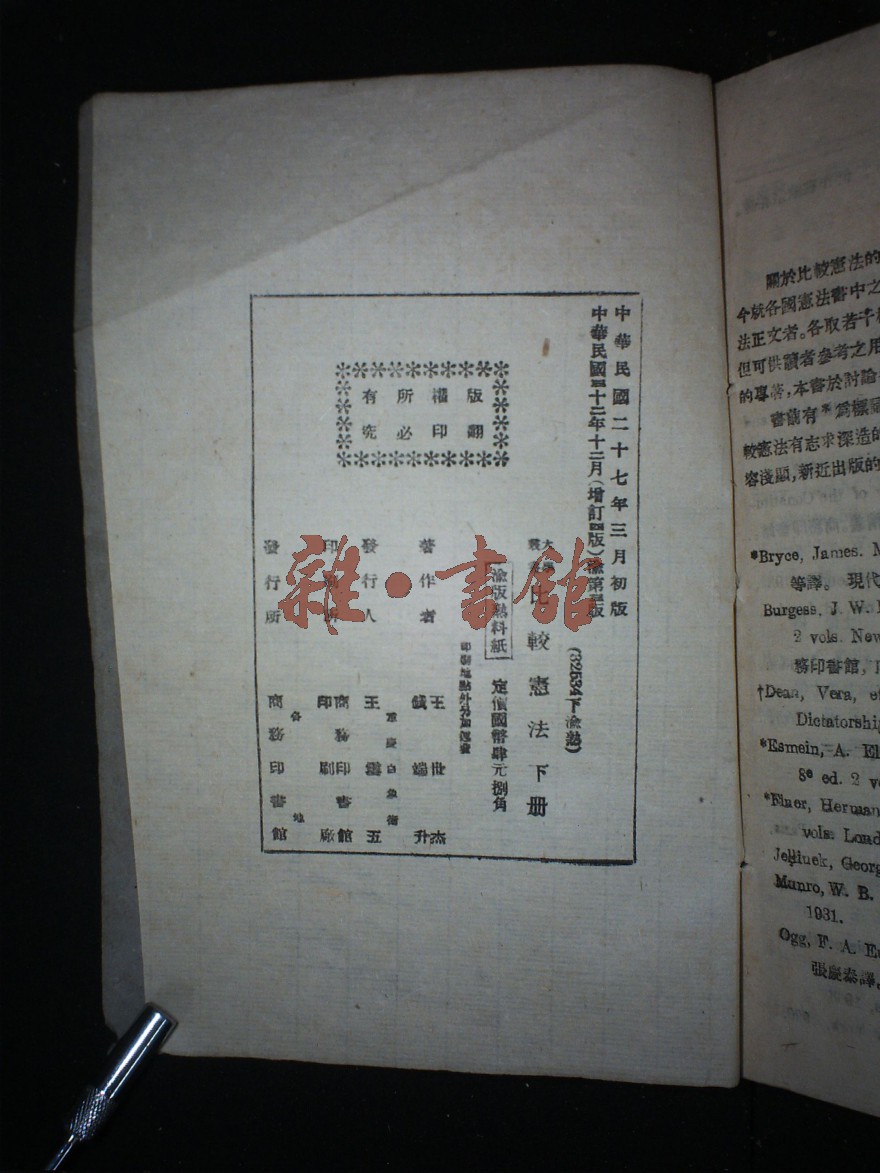 中華民國二十七年三月初版
中華民國三十二年十二月(增訂四版)渝第一版
(32534下渝熟)
大學
叢書 比較憲法下册
渝版熟料紙 定價國幣肆元捌角
印刷地點外另加運費
著作者 王世杰
錢端升
發行人 王雲五
重慶白象街
印刷所 商務印書館
印刷廠
發行所 商務印書館
各地
版權所有
翻印必究
雜·書館
關於比較憲法的
今就各國憲法書中之
法正文者。各取若干
但可供讀者參考之用
的專著,本書於討論
書前有*爲標
較憲法有志求深造的
容淺顯,新近出版的
*Bryce, James. M
等譯。 現代
Burgess, J. W.
2 vols. New
務印書館,
†Dean, Vera,
Dictatorshi
*Esmein, A. El
8e ed. 2 v
*Finer, Herman
vols. Lond
Jellinek, Georg
Munro, W. B.
1931.
Ogg, F. A. Eu
張慶泰譯。